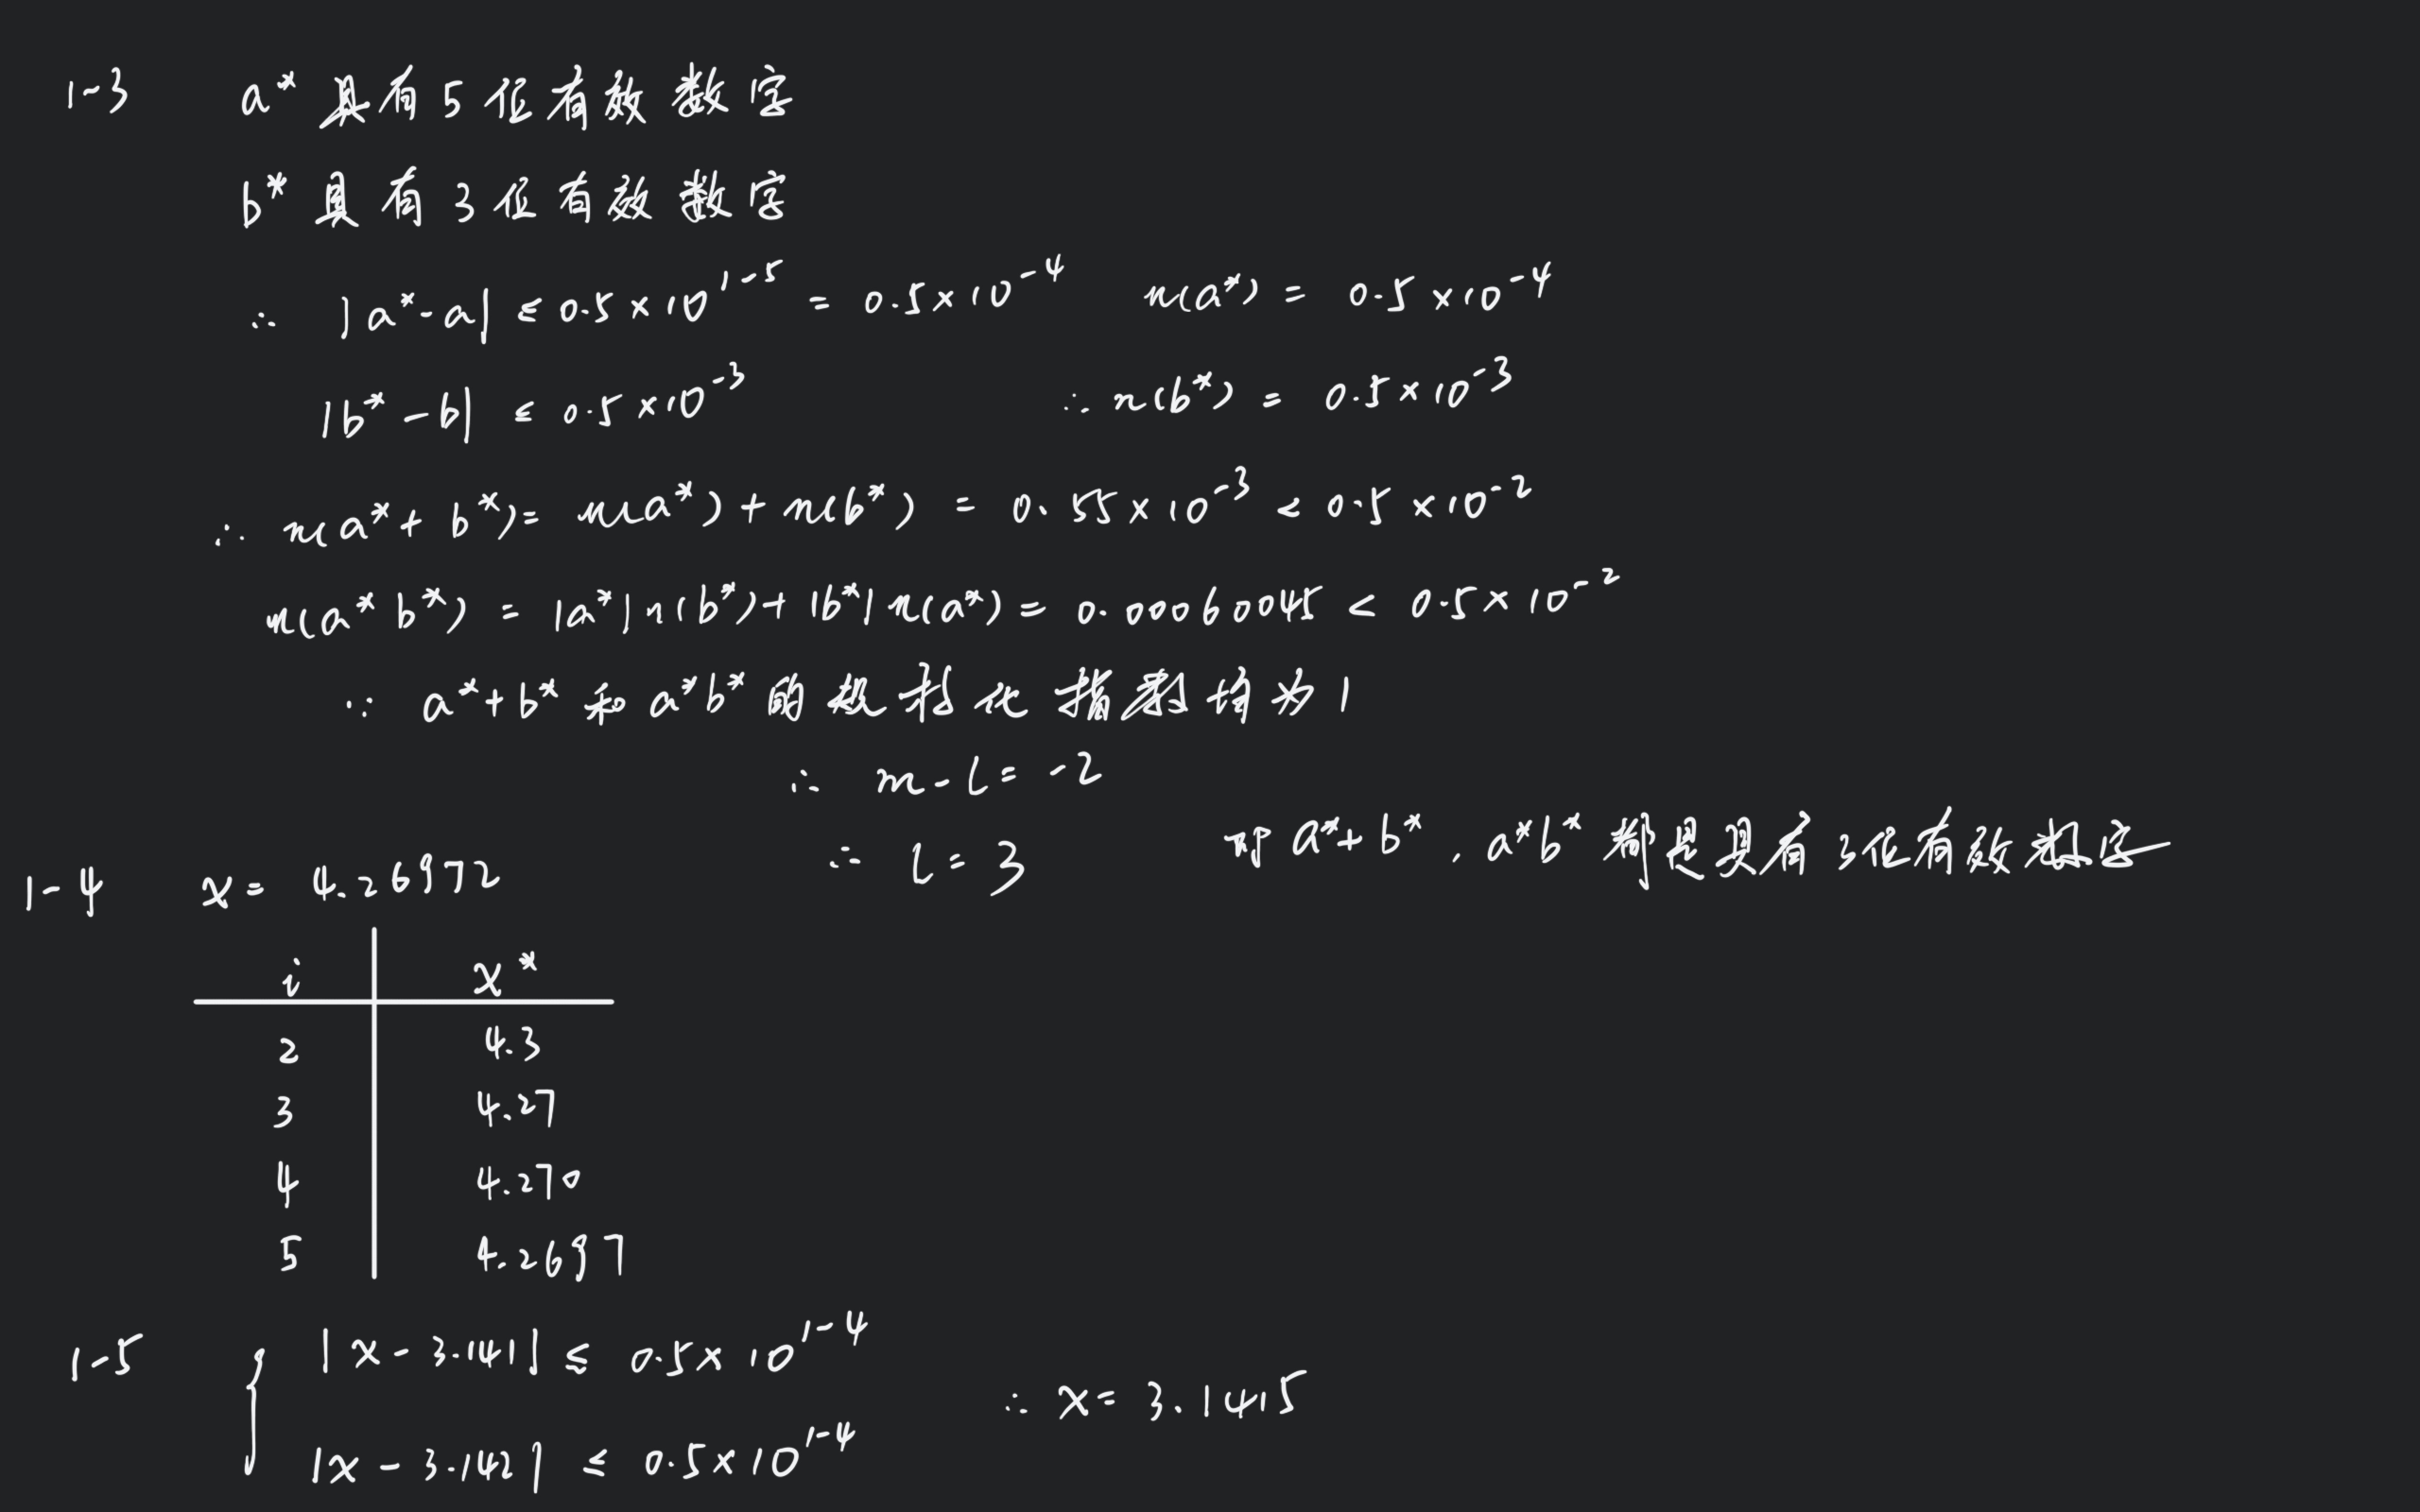 1-3 a* 具有5位有效数字
b* 具有3位有效数字
∴ |a*-a| ≤ 0.5×10^{1-5} = 0.5×10^{-4} n(a*) = 0.5×10^{-4}
|b*-b| ≤ 0.5×10^{-3} ∴ n(b*) = 0.5×10^{-3}
∴ n(a*+b*) = n(a*)+n(b*) = 0.55×10^{-3} < 0.5×10^{-2}
n(a*b*) = |a*|n(b*)+|b*|n(a*) = 0.00060045 < 0.5×10^{-2}
∵ a*+b* 和 a*b* 的规格化指数均为1
∴ m-l=-2
∴ l=3 即 a*+b*, a*b* 都是具有3位有效数字
1-4 x= 4.26972
i x*
2 4.3
3 4.27
4 4.270
5 4.2697
1-5 { |x-3.141| ≤ 0.5×10^{1-4}
∴ x= 3.1415
|x-3.142| ≤ 0.5×10^{1-4}